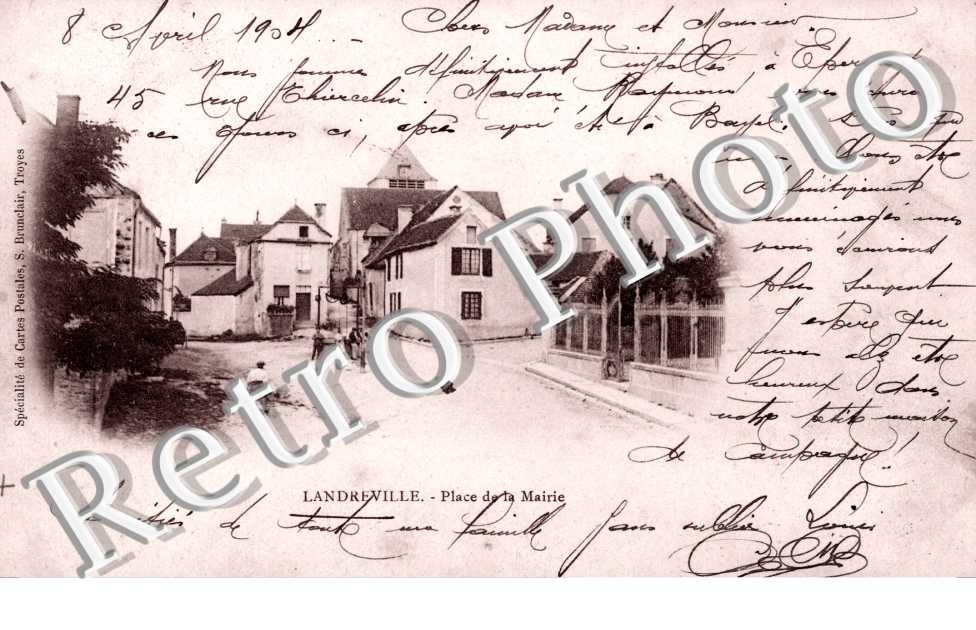 8 Avril 1904 - Chers Madame et Monsieur
Nous sommes définitivement installés, à Eper
45 rue Thiercelin. Madame Raymond
ces jours ci, après avoir été à Bayel.
vous être
définitivement
emménagés vous
vous
plus souvent
J'espère que
vous allez être
heureux dans
votre petite maison
de campagne!
Spécialité de Cartes Postales, S. Brunclair, Troyes
LANDREVILLE. - Place de la Mairie
de toute ma famille sans oublier
Retro Photo